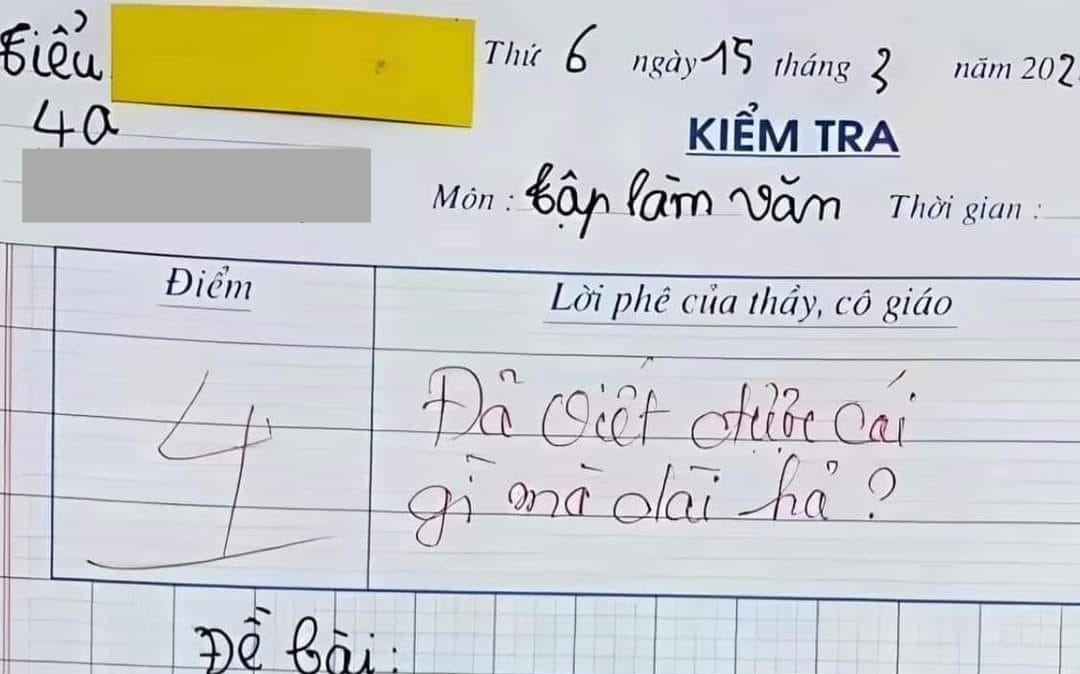 Tiểu
Thứ 6 ngày 15 tháng 3 năm 202
4a
KIỂM TRA
Môn : tập làm văn Thời gian :
Điểm
Lời phê của thầy, cô giáo
4
Đã viết được cái
gì mà dài hả ?
Đề bài: